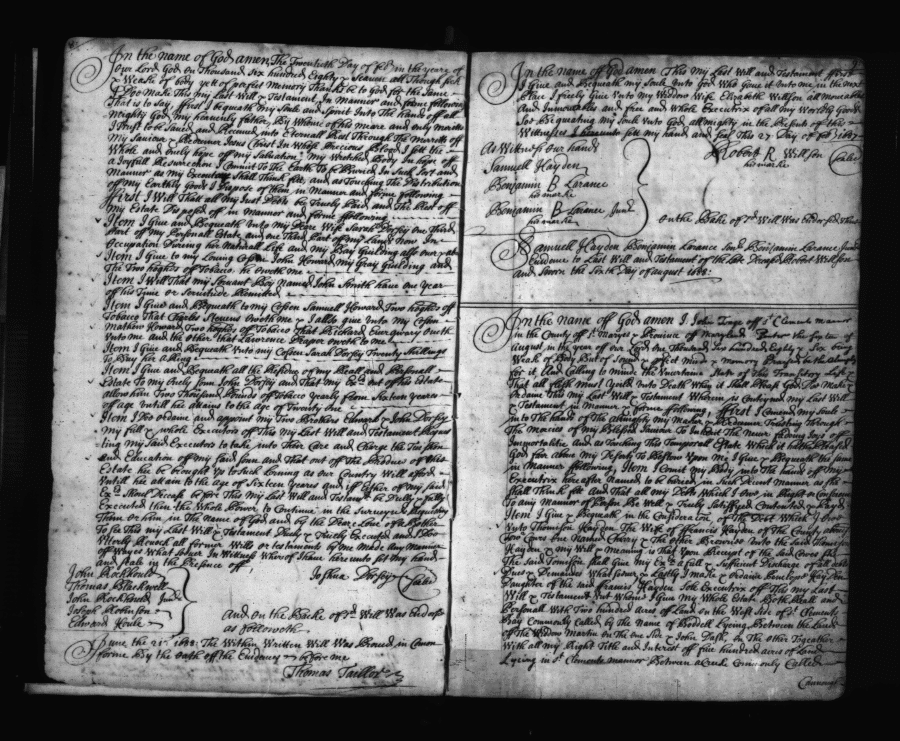 In the name of God amen, The Twentieth Day of in the year of
Our Lord God on Thousand Six hundred Eighty & Seaven all Though Sick
& Weake of body yett of perfect Memory Thanks be to God for the Same
Doe Make This my Last Will & Testament In Manner and forme following
That is to Say, first I bequeath my Soule and Spirit Into The hands off all
Mighty God my heavenly father, By Whome of his meare and only
I trust to be Saved and Received into Eternall Rest Through The Merritts off
My Saviour & Redeemer Jesus Christ In Whose Precious Blood I sett the
Whole and onely hope of my Salvation, my Wretched Body In hope off
a Joyfull Resurrection I Committ To The Earth To be Buried In Such Sort and
Manner as my Executors Shall Think fitt, and as Touching The Distribution
off my Earthly Goods I Dispose of them in Manner and forme following
first I Will That all my Just Debts be Truely Paid, and The Rest off
my Estate Disposed off in manner and forme following
Item I Give and Bequeath unto my Deare Wife Sarah Dorsey One Third
Part of my Personall Estate, and one Third Part of my Land Now In
Occupation During her Naturall Life and my Bay Guilding
Item I Give to my Loving Cosen John Howard my Gray Guilding and
The Two hogsds of Tobacco he oweth me
Item I Will That my Servant Boy Named John Smith have One Year
of his Time or Service Remitted
Item I Give and Bequeath to my Cosen Samuell Howard Two hogsds off
Tobacco That Charles Stevens Oweth me & I allso give Unto my Cosen
Mathew Howard Two hogsds of Tobacco That Richard oweth
Unto me and the other that Lawrence Draper oweth to me
Item I Give and Bequeath Unto my Cosen Sarah Dorsey Twenty Shillings
To Buy her a Ring
Item I Give and Bequeath all the Residue of my Reall and Personall
Estate To my Onely Sonn John Dorsey and That my Exrs out of his Estate
allow him Two Thousand Pounds of Tobacco Yearly from Sixteen years
of age Untill he attains to the age of Twenty One
Item I Doe Ordaine and appoint my Two Brothers Edward & John Dorsey
My full & whole Executors of This My Last Will and Testament
ting my Said Executors to take into Their Care and Charge the Tuition
and Education off my Said Sonn and That out off the Produce of his
Estate he be brought Up to Such Lerning as our Country Will afford
Untill he attain to the age of Sixteen Years and iff Either of my Said
Exrs Should Decease before This My Last Will and Testament be Dully & fully
Executed then the whole Power to Continue in the Survivor
Them or him, in The Name of God and by the Deare Love of a Brother
To See This my Last Will & Testament Duely & Truely Executed and I Doe
Utterly Revock all former Wills or testaments by me Made any Manner
off Wayes What Soever In Witness Whereof I have hereunto sett my hand
and Seale in the Presence off
John Rockhould
Thomas Blackwell
John Rockhould Junr
Joseph Robinson
Edward
Joshua Dorsey Seale
And on the Backe of sd Will Was Endorst
as followeth
June the 1688: The Within Written Will Was Proved in Comon
forme By the oath off the Evidences before me
Thomas Taillor
In the name off God amen This My Last Will and Testament first
I Give and Bequeath my Soule Unto God Who Gave it Unto me in the next
Place I freely Give Unto My Widdow Wife Elizabeth Willson all Moveables
And Immovables and free and Whole Executrix of all my Worldly Goods
Soe Bequeathing my Soule Unto God all mighty in the Presents of these
Witnesses I hereunto sett my hand and Seal This 27 Day of 1687
As Witness our hands
Samuell Hayden
Benjamin B Larance
his marke
Benjamin B Larance Junr
his marke
Robert R Willson Seale
his marke
On the Backe of sd Will Was Endorsed Thus
Samuell Hayden Benjamin Larance Senr Benjamin Larance Junr
Evidence to Last Will and Testament of the Late Deceased Robert Willson
and Sworne the Tenth Day of August 1688:
In the name off God amen I John Tage off St Clements mannor
in the County off St Marys & Province of Maryland the of
August in the year of our Lord One Thousand Six hundred Eighty & Six Being
Weak of Body But of Sound & perfect Mind & memory Praised be the Almighty
for it and Calling to minde the Uncertaine State of This Transitory Life &
That all flesh must Yeild Unto Death When it Shall Please God Doe Make &
Ordaine This my Last Will & Testament Wherein is Contayned my Last Will
& Testament in Manner & forme following, first I Comend my Soule
in To the hands of The Almighty my Maker & Redeemer Trusting Through
The Mercies of my Blessed Saviour To Inherit The Never fading Joys of
Immortalitie and as Touching This Temporall Estate Which it hath pleased
God far above my Deserts To Bestow Upon me I Give & Bequeath the Same
in Manner following, Item I Comit my Body into The hands off my
Executrix hereafter Named to be buried, in Such Decent Manner as She
Shall Think fitt and That all my Debts Which I owe in Right or Conscience
To any Manner of Person Be Well & Truely Sattisfyed Contented & Payd
Item I Give & Bequeath in the Consideration of The Debt Which I owe
Unto Thomison Hayden The Wife of Francis Hayden of The County
Two Cowes One Named Cherry & The Other Brownies Unto the Said Thomison
Hayden & my Will & Meaning is That Upon Receipt of the Said Cowes She
The Said Tomison Shall Give My Exr a full & Sufficient Discharge of all debts
Dues & Demands What Soever & Lastly I make & Ordaine Penelope Hayden
Daughter of the Said Francis Hayden Sole Executrix of This My Last
Will & Testament Unto Whome I Give my Whole Estate Both Reall and
Personall With Two hundred Acres of Land on the West Side of St Clements
Bay Commonly Called by The Name of Boddell Lyeing Between the Lands
of The Widow Martin On the one Side & John Dash, on The Other Togeather
With all my Right Title and Interest off five hundred acres of Land
Lyeing in St Clements mannor Between a Creeke Commonly Called